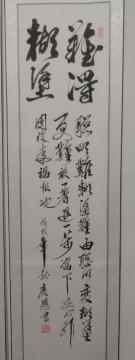 難得
糊塗
聰明難糊塗難由聰明變糊塗
更難放一著退一步當下心安非
圖後來福報也 戊戌年秋